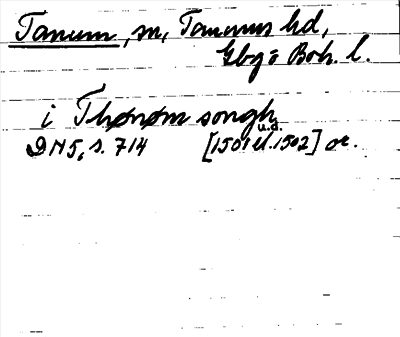 Tanum, sn, Tanums hd,
Gbgs o Boh. l.
i Thønøm songh
DN 5, s. 714 [1501 el. 1502] u.d. or.